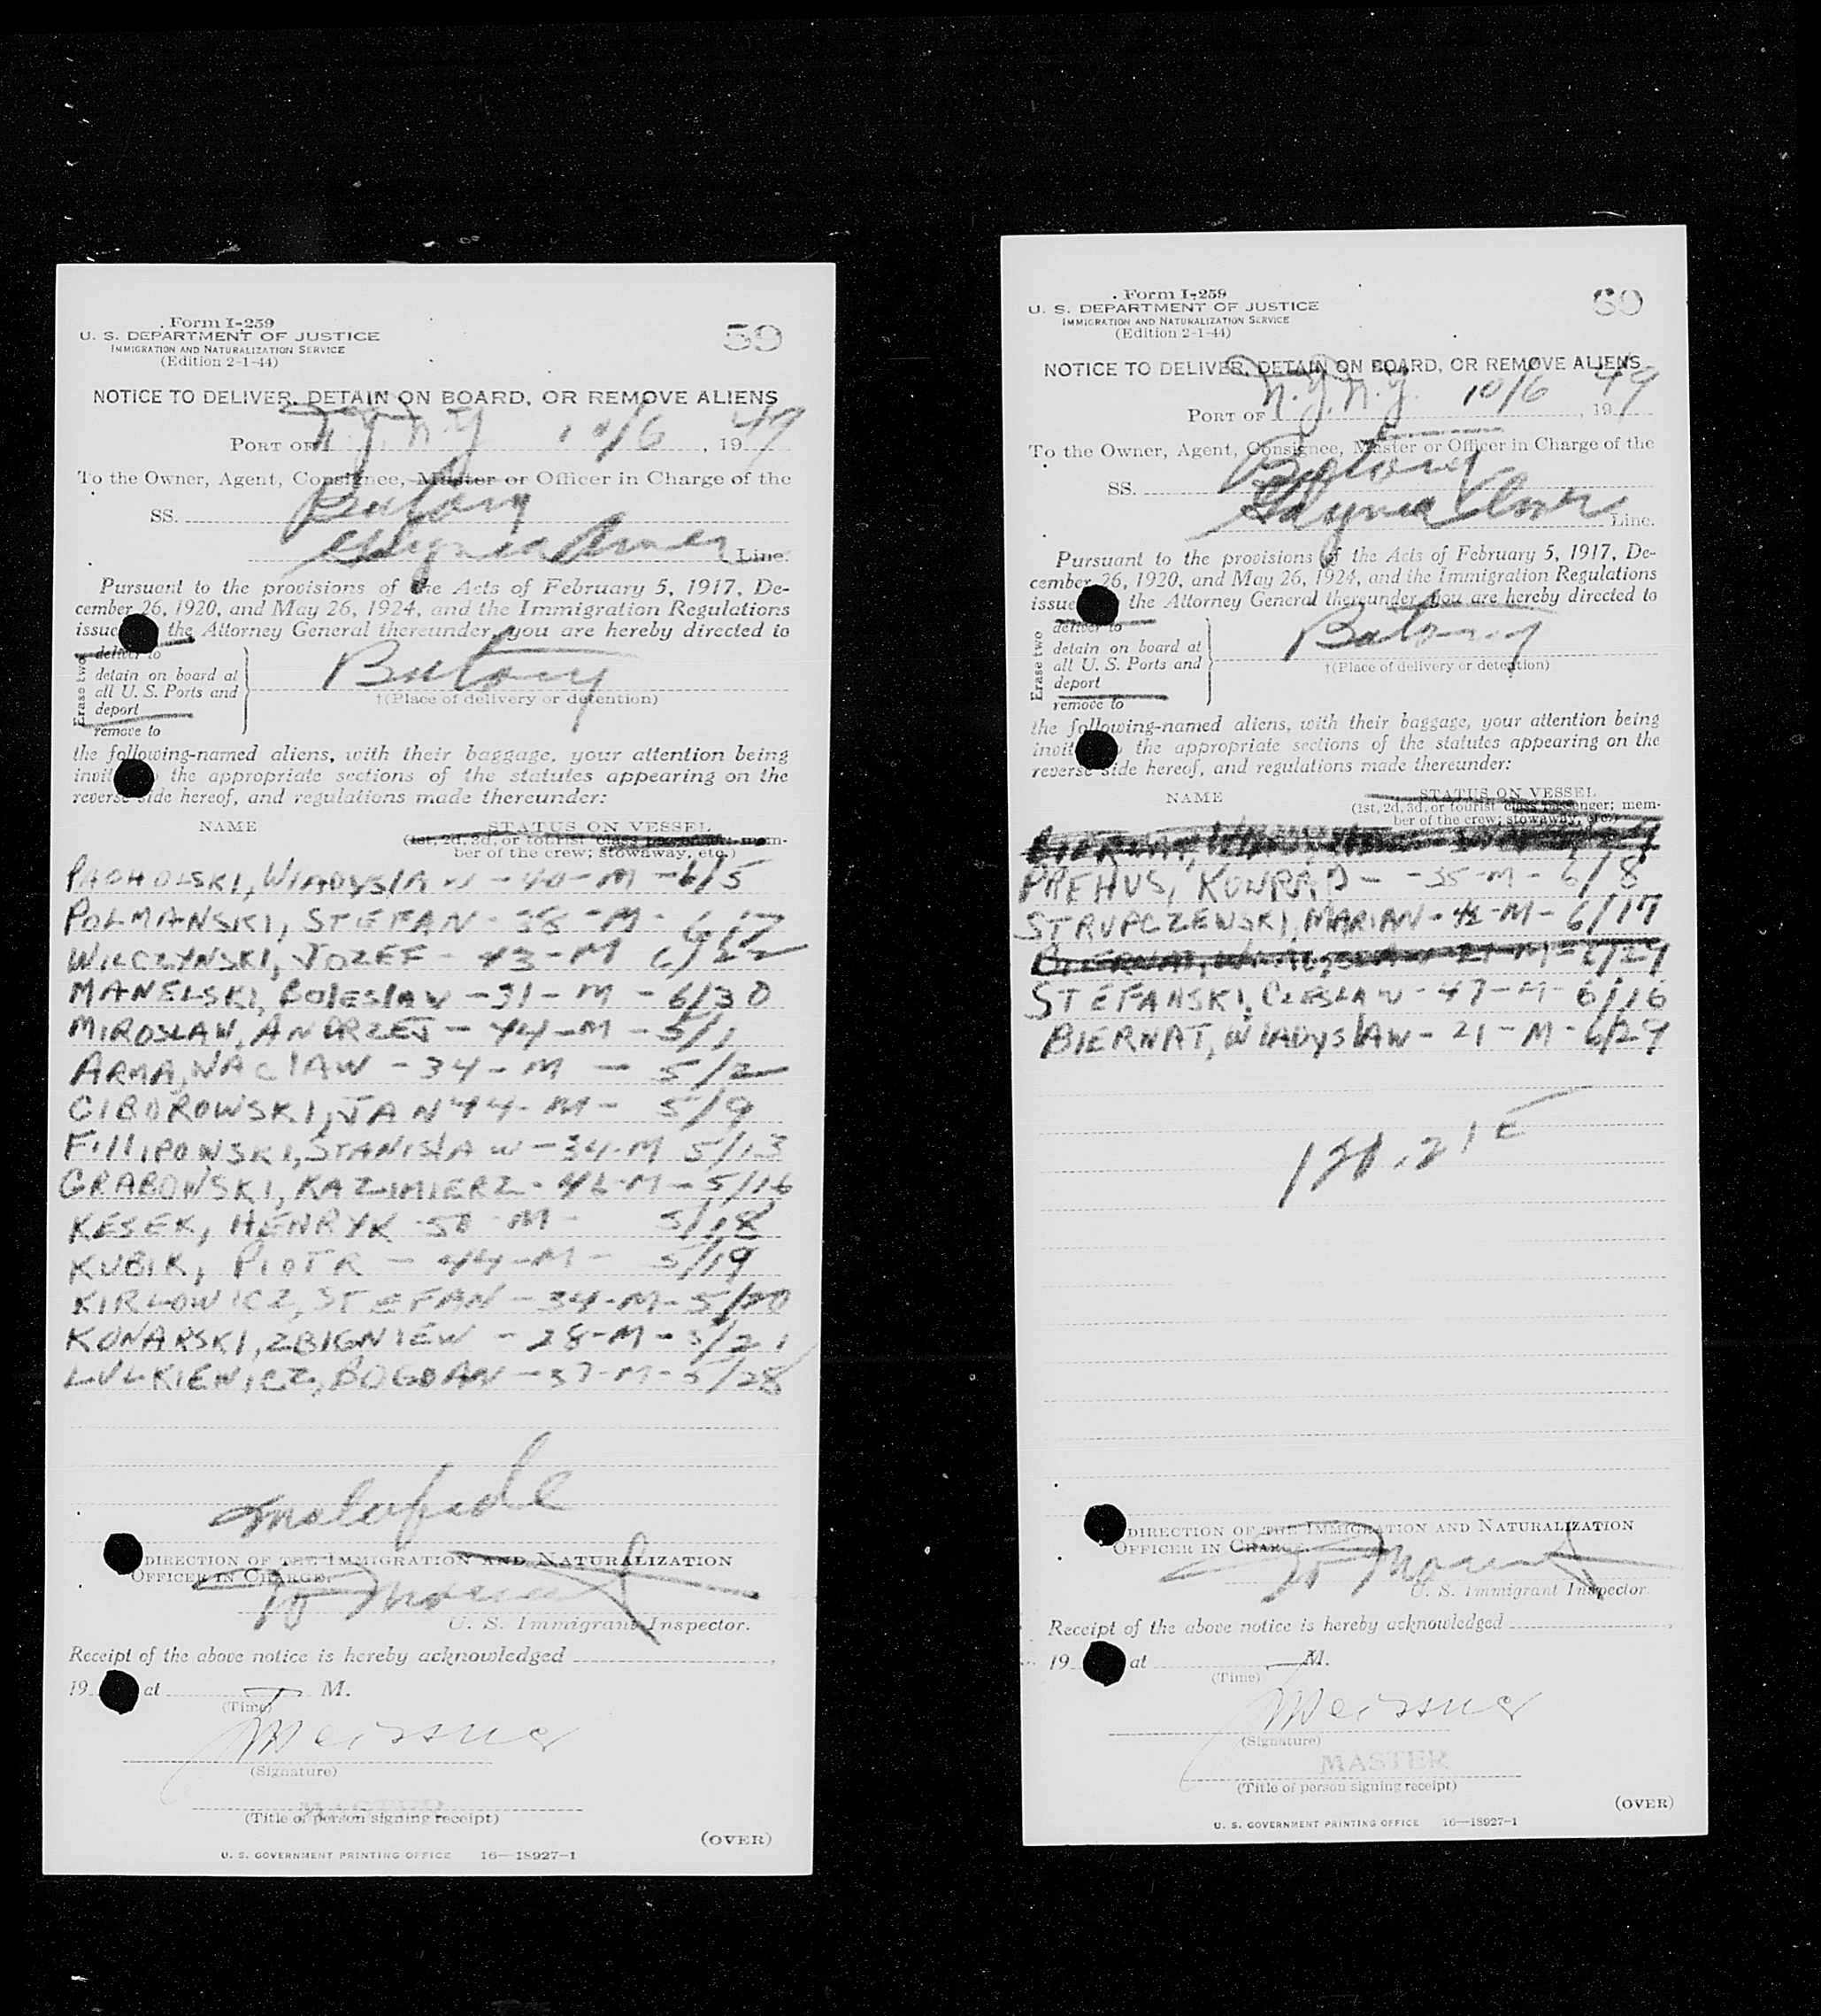 Form I-259
U. S. DEPARTMENT OF JUSTICE
IMMIGRATION AND NATURALIZATION SERVICE
(Edition 2-1-44)
59
NOTICE TO DELIVER, DETAIN ON BOARD, OR REMOVE ALIENS
PORT OF N.Y. N.Y 10/6, 1949
To the Owner, Agent, Consignee, Master or Officer in Charge of the
SS. Batory
Gdynia Amer Line.
Pursuant to the provisions of the Acts of February 5, 1917, De-
cember 26, 1920, and May 26, 1924, and the Immigration Regulations
issue the Attorney General thereunder, you are hereby directed to
Erase two
deliver to
detain on board at
all U. S. Ports and
deport
remove to
Batory
†(Place of delivery or detention)
the following-named aliens, with their baggage, your attention being
invit the appropriate sections of the statutes appearing on the
reverse side hereof, and regulations made thereunder:
NAME STATUS ON VESSEL
(1st, 2d, 3d, or tourist class passenger; mem-
ber of the crew; stowaway, etc.)
PACHOLSKI, WlADYSlAW - 40 - M - 6/5
POLMANSKI, STEFAN - 38 - M - 6/17
WILCZYNSKI, JOZEF - 43 - M 6/22
MANELSKI, BOlESlAW - 31 - M - 6/30
MIROSLAW, ANDRZEJ - 44 - M - 5/1
ARMA, WAClAW - 34 - M - 5/2
CIBOROWSKI, JAN 44 - M - 5/9
FIllIPOWSKI, STANISlAW - 34 - M 5/13
GRABOWSKI, KAZIMIERZ - 46 - M - 5/16
KESEK, HENRYK - 50 - M - 5/18
KUBIK, PIOTR - 44 - M - 5/19
KIRLOWICZ, STEFAN - 34 - M - 5/20
KONARSKI, ZBIGNIEW - 28 - M - 5/21
LULKIEWICZ, BOGDAN - 37 - M - 5/28
malafide
DIRECTION OF THE IMMIGRATION AND NATURALIZATION
OFFICER IN CHARGE.
U. S. Immigrant Inspector.
Receipt of the above notice is hereby acknowledged
19 at M.
(Time)
Meissner
(Signature)
MASTER
(Title of person signing receipt)
(OVER)
U. S. GOVERNMENT PRINTING OFFICE 16—18927-1
Form I-259
U. S. DEPARTMENT OF JUSTICE
IMMIGRATION AND NATURALIZATION SERVICE
(Edition 2-1-44)
NOTICE TO DELIVER, DETAIN ON BOARD, OR REMOVE ALIENS
PORT OF N.Y. N.Y. 10/6, 1949
To the Owner, Agent, Consignee, Master or Officer in Charge of the
SS. Batory
Gdynia Amer Line.
Pursuant to the provisions of the Acts of February 5, 1917, De-
cember 26, 1920, and May 26, 1924, and the Immigration Regulations
issue the Attorney General thereunder, you are hereby directed to
Erase two
deliver to
detain on board at
all U. S. Ports and
deport
remove to
Batory
†(Place of delivery or detention)
the following-named aliens, with their baggage, your attention being
invit the appropriate sections of the statutes appearing on the
reverse side hereof, and regulations made thereunder:
NAME STATUS ON VESSEL
(1st, 2d, 3d, or tourist class passenger; mem-
ber of the crew; stowaway, etc.)
PREHUS, KONRAD - - 35 - M - 6/8
STRUPCZEWSKI, MARIAN - 42 - M - 6/17
BIERNAT, WlADYSlAW - 21 - M - 6/29
STEFANSKI, CZESLAW - 47 - M - 6/16
BIERNAT, WlADYSlAW - 21 - M - 6/29
DIRECTION OF THE IMMIGRATION AND NATURALIZATION
OFFICER IN CHARGE.
U. S. Immigrant Inspector.
Receipt of the above notice is hereby acknowledged
19 at M.
(Time)
Meissner
(Signature)
MASTER
(Title of person signing receipt)
(OVER)
U. S. GOVERNMENT PRINTING OFFICE 16—18927-1